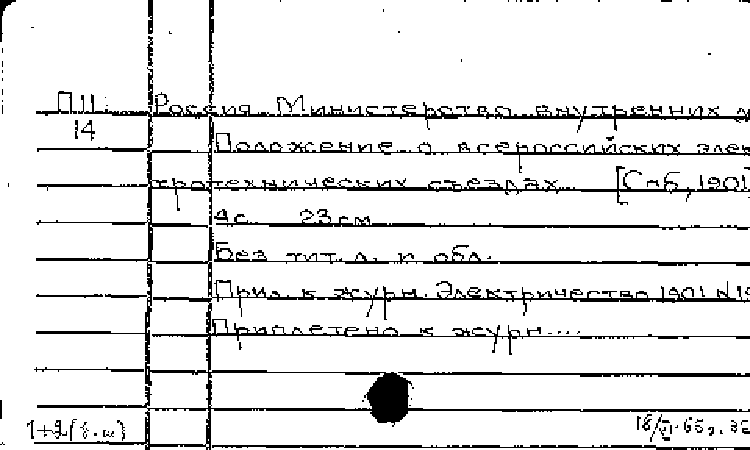 П11 Россия. Министерство внутренних
14 Положение о всероссийских элек
тротехнических съездах. [Спб, 1901]
4с. 23см
Без тит. л. и обл.
Прил. к журн. Электричество 1901 N
Приплетено к журн....